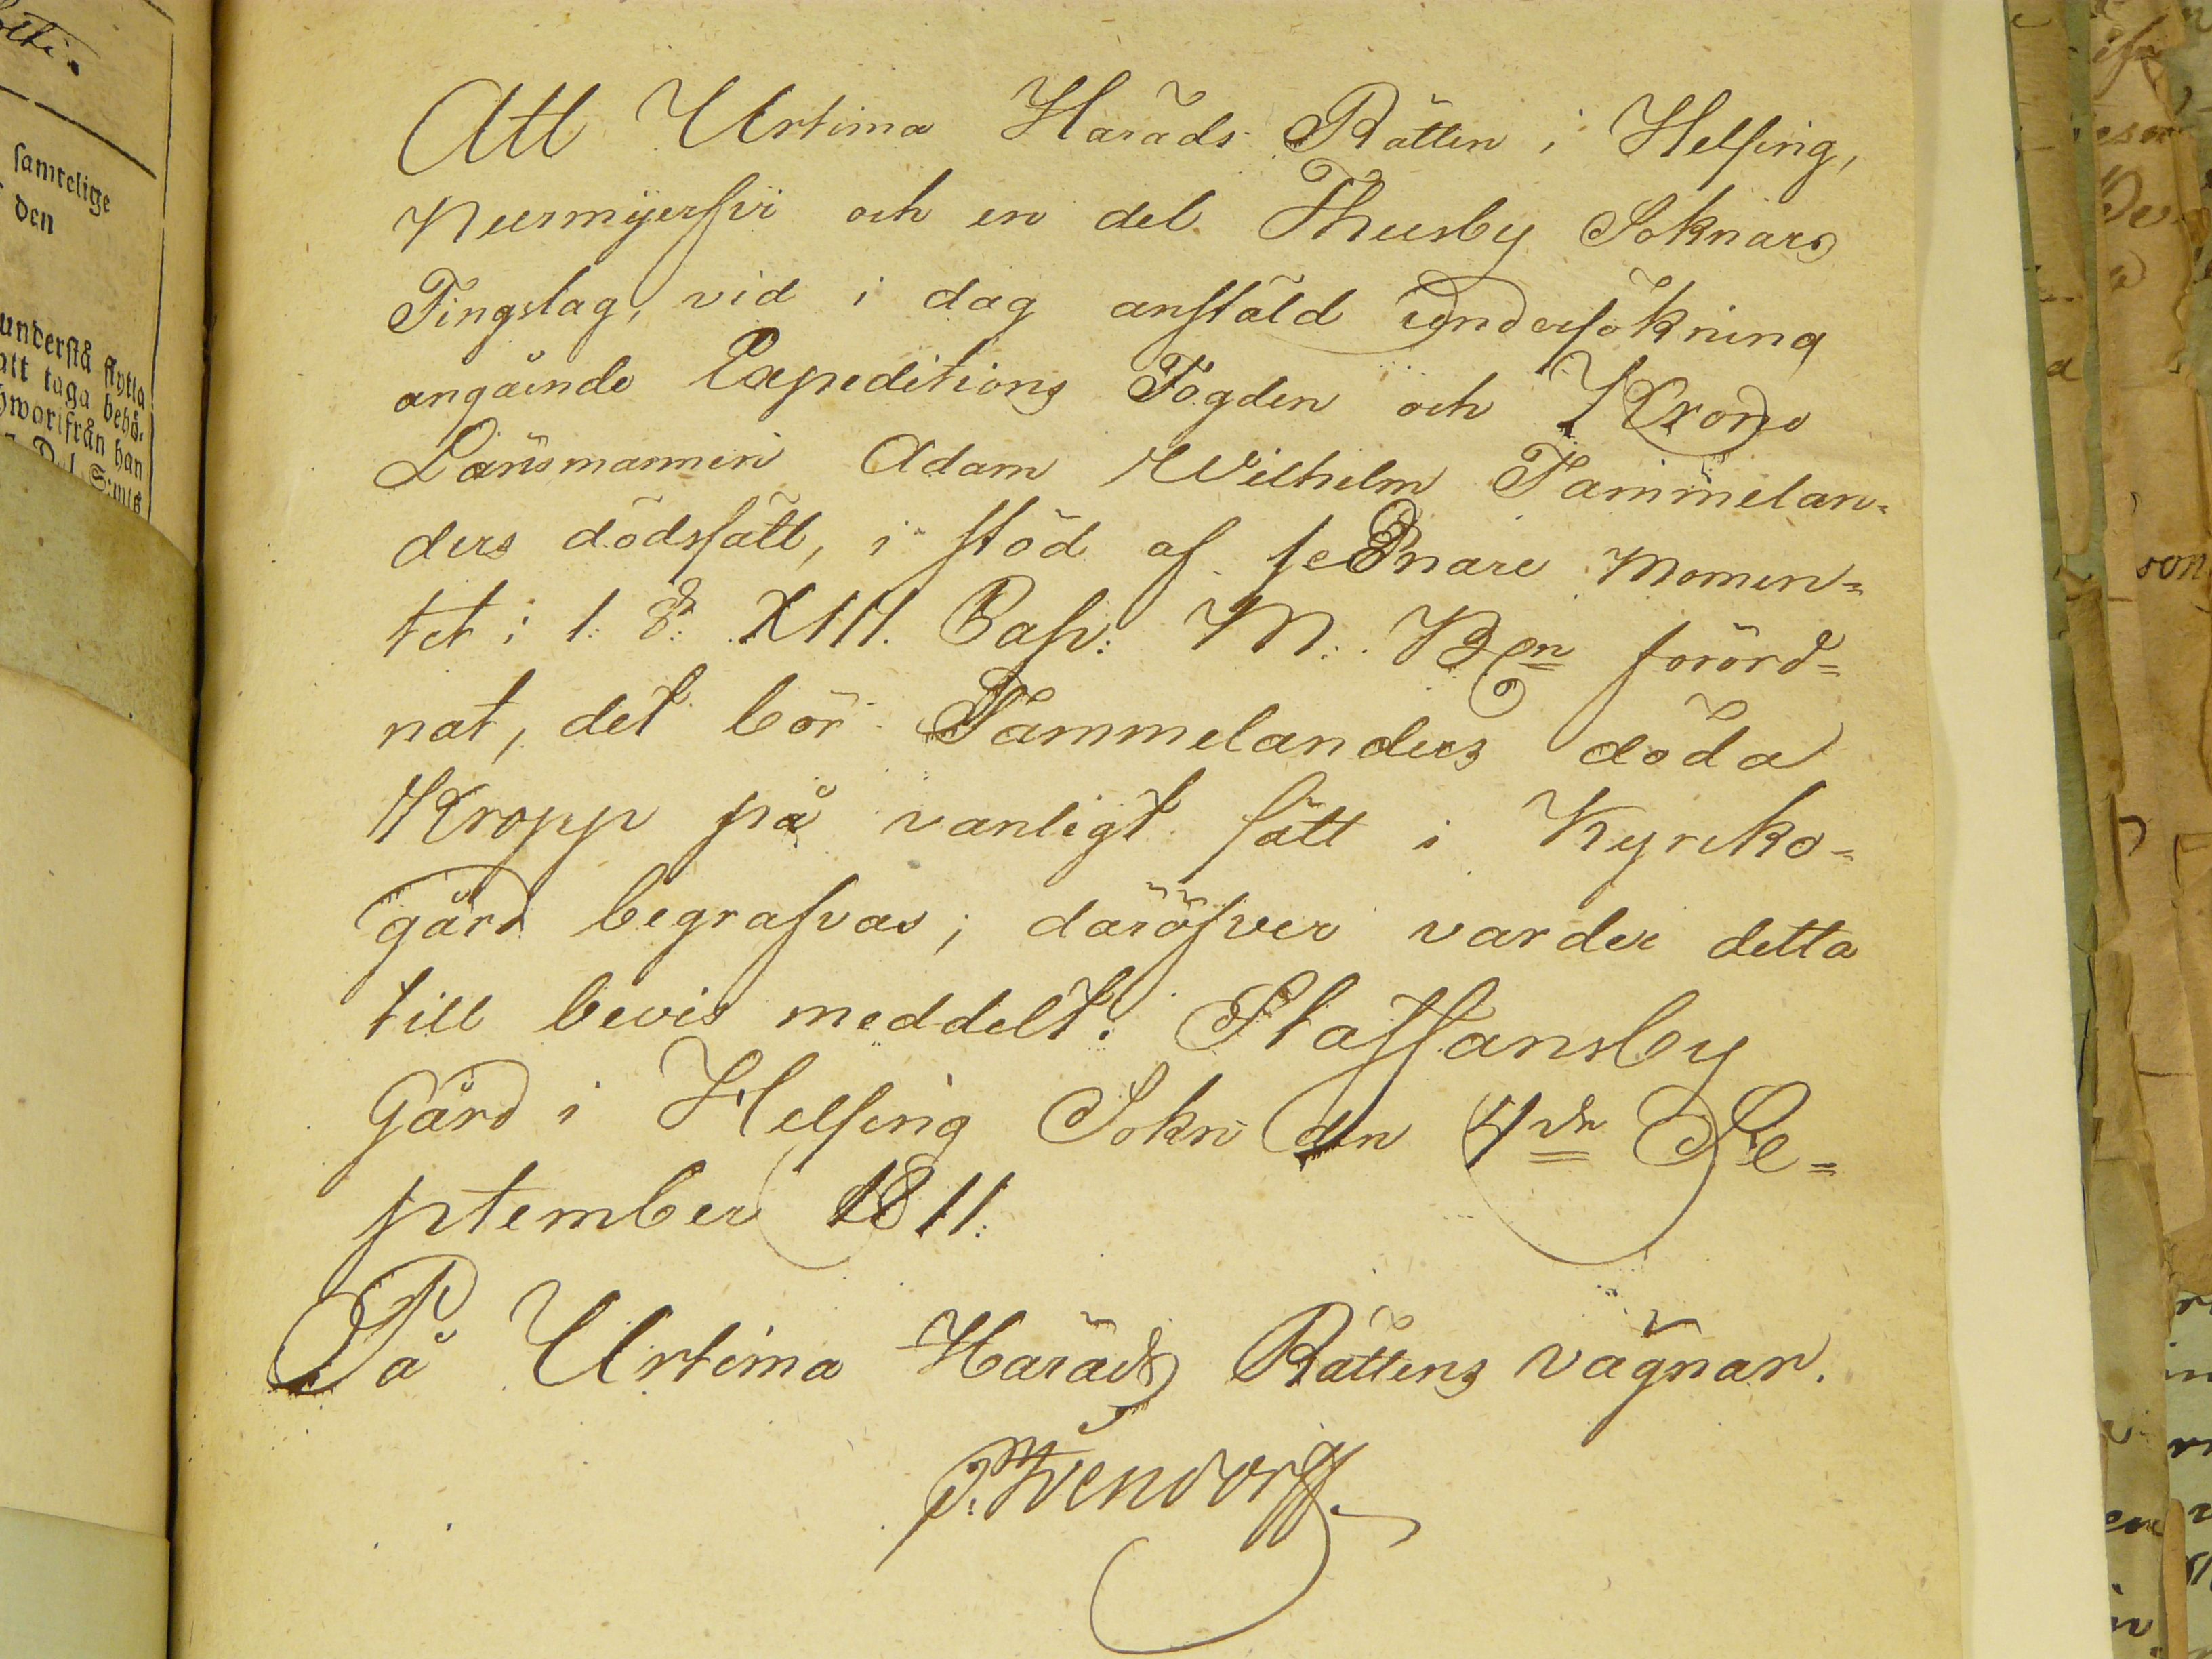 samtelige
den
understå flytta
att taga behö-
hworifrån han
Att Urtima Härads Rätten i Helsing,
Nurmijerfvi och en del Thusby Soknars
Tingslag, vid i dag anstäld undersökning
angående Expeditions Fogden och Krono
Länsmannen Adam Wilhelm Tammelan=
ders dödssätt, i stöd af sednare Momen=
tet i 1. §. XIII. Cap: M. B:n förord=
nat, det bör Tammelanders döda
Kropp på vanligt sätt i Kyrko=
gård begrafvas; däröfver varder detta
till bevis meddelt. Staffansby
Gård i Helsing Sokn den 4de Se=
ptember 1811.
På Urtima Härads Rättens vägnar.